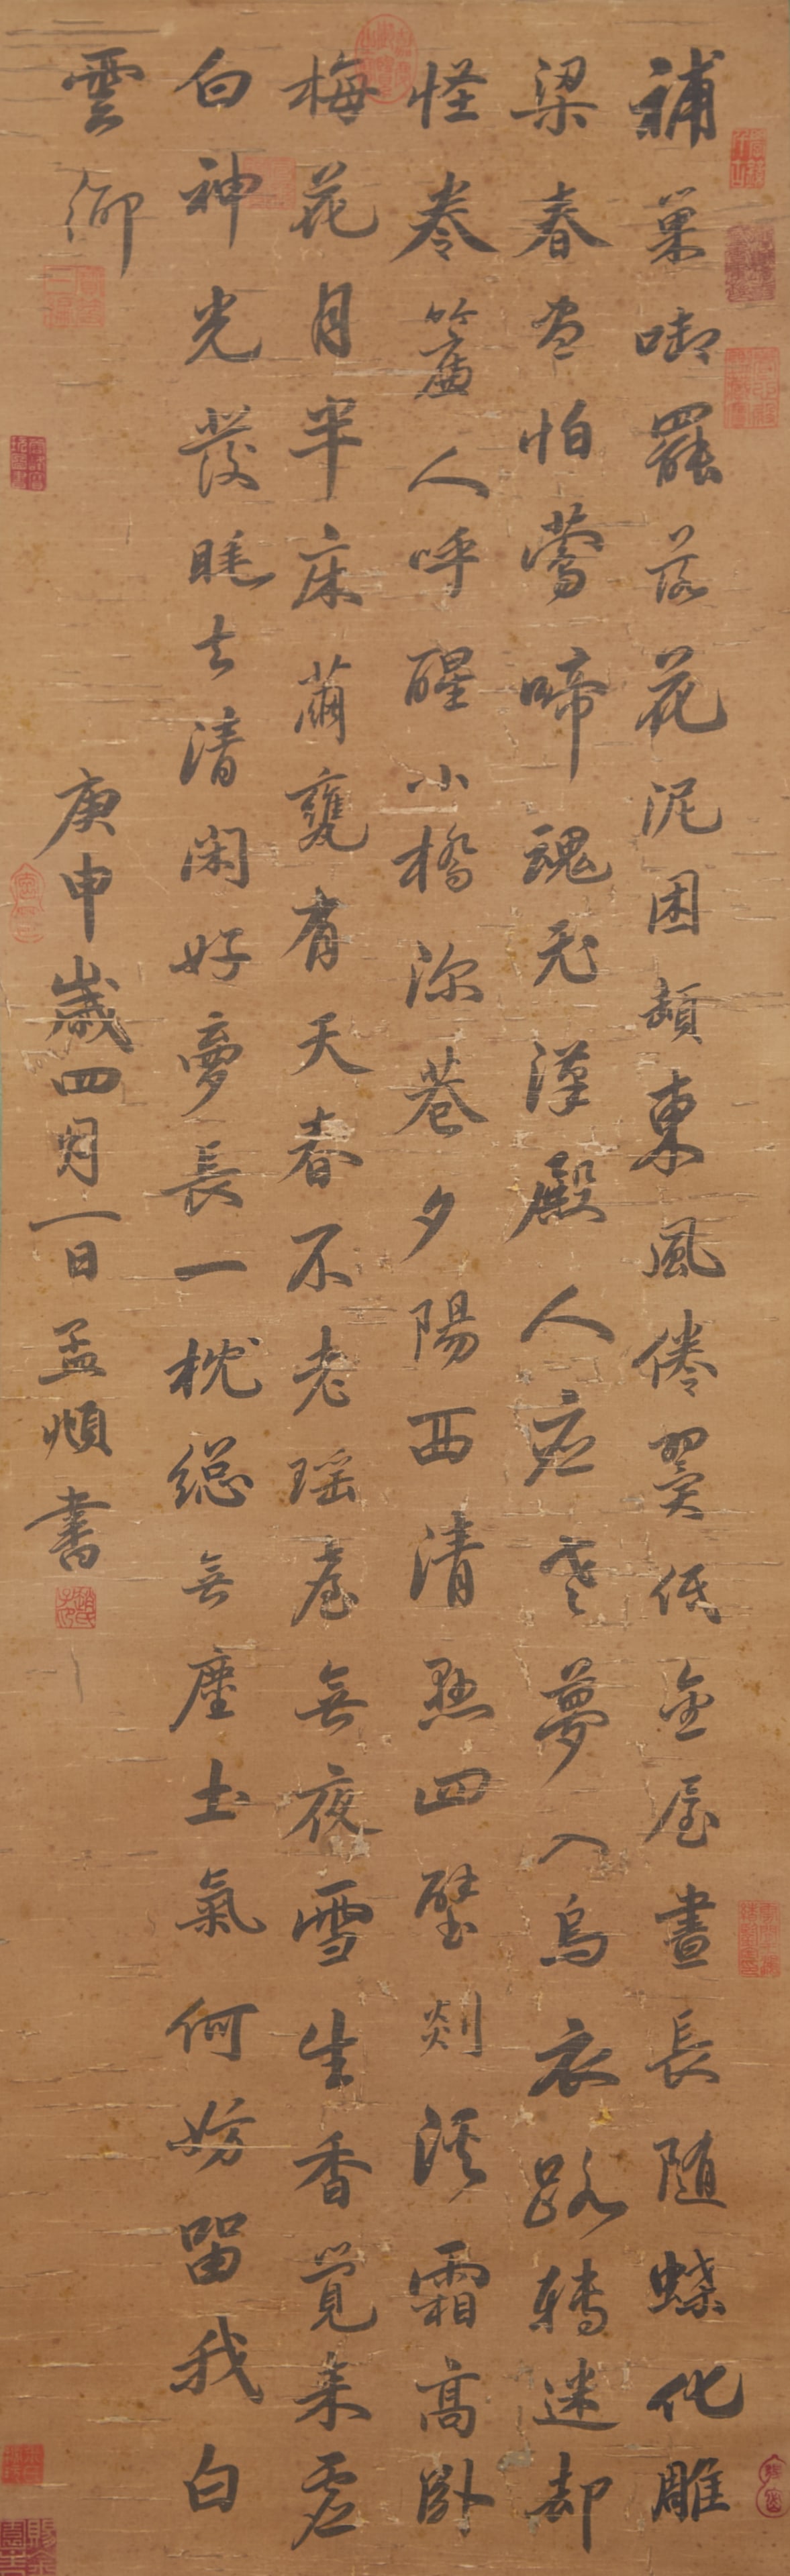 補巢啣罷落花泥困頓東風倦翼低金屋晝長随蝶化雕
梁春盡怕鶯啼魂飛漢殿人應老夢入烏衣路轉迷却
怪卷簾人呼醒小橋深巷夕陽西清懸四壁剡溪霜高卧
梅花月半床繭甕有天春不老瑶臺無夜雪生香覺来虚
白神光發睡去清閑好夢長一枕總無塵土氣何妨留我白
雲鄉
庚申歲四月一日孟頫書